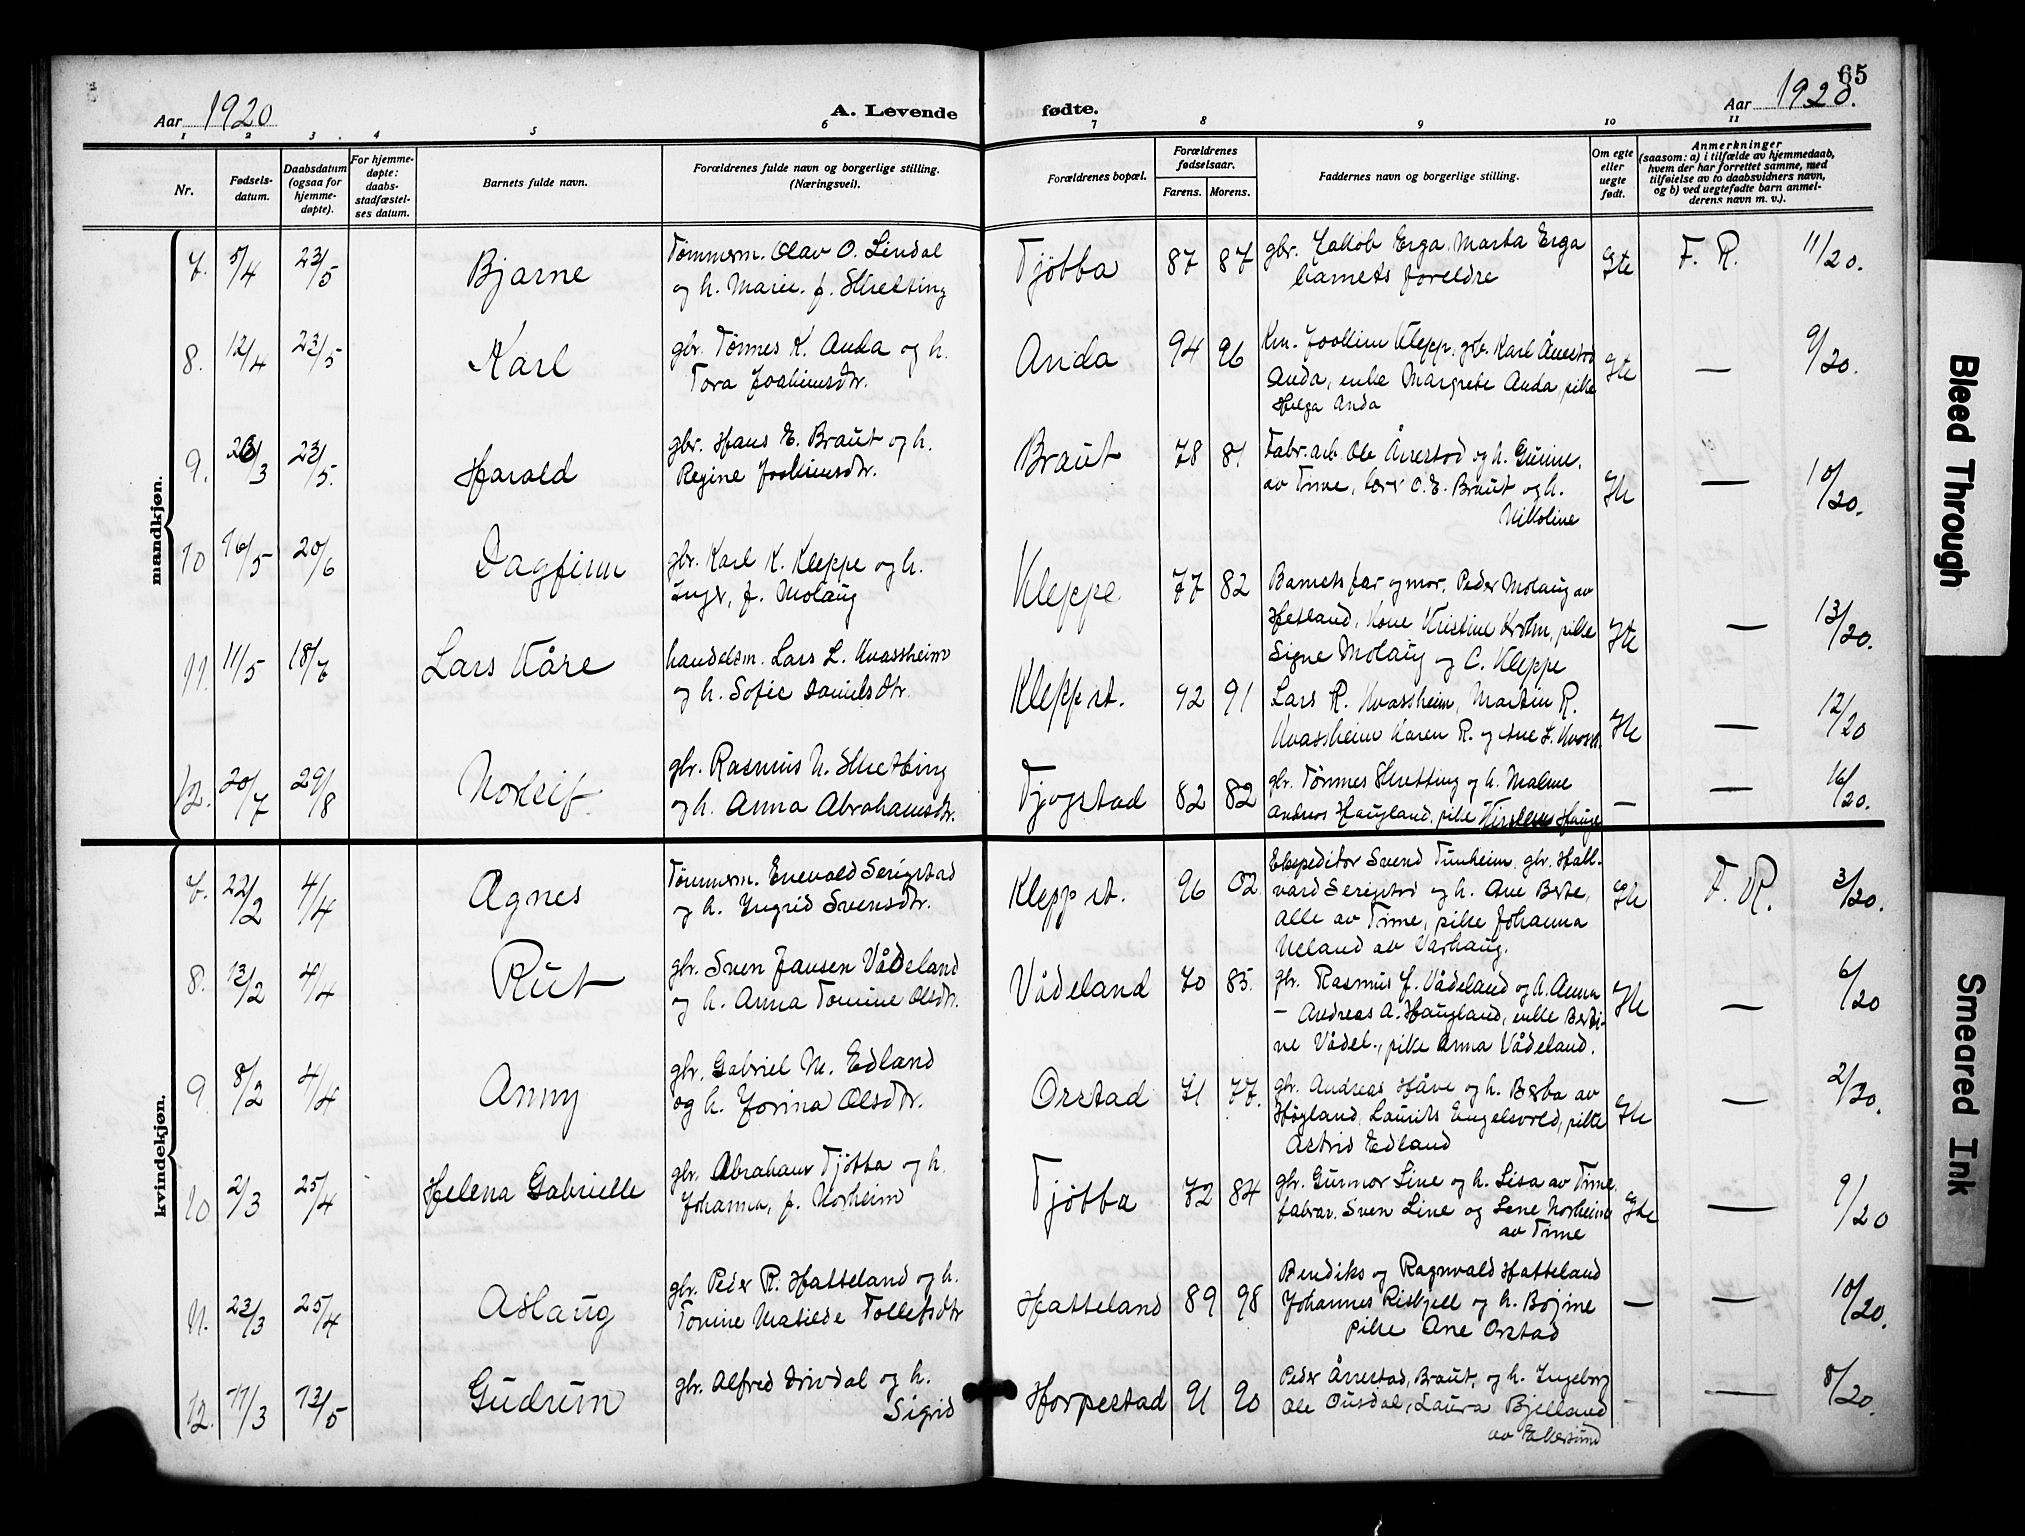 65
Aar 1920
A. Levende
fødte.
Aar 1920.
1 2 3 4 5 6 7 8 9 10 11
Nr.
Fødsels-
datum.
Daabsdatum
(ogsaa for
hjemme-
døpte).
For hjemme-
døpte:
daabs-
stadfæstel-
ses datum.
Barnets fulde navn.
Forældrenes fulde navn og borgerlige stilling.
(Næringsvei).
Forældrenes bopæl.
Forældrenes
fødselsaar.
Farens. Morens.
Faddernes navn og borgerlige stilling.
Om egte
eller
uegte
født.
Anmerkninger
(saasom: a) i tilfælde av hjemmedaab,
hvem der har forrettet samme, med
tilføielse av to daabsvidners navn,
og b) ved uegtefødte barn anmel-
derens navn m. v.).
mandkjøn.
7. 5/4 23/5 Bjarne
Tømmerm. Olav O. Lindal
og h. Marie f. Skretting
Tjøtta 87 87
gbr. Jakob Erga, Marta Erga
barnets foreldre
Gte F. R. 11/20.
8. 12/4 23/5 Karl
gbr. Tønnes K. Anda og h.
Tora Joakimsdtr.
Anda 94 96
Km. Joakim Klepp, gbr. Karl Årrestad
Anda, enke Margrete Anda, pike
Helga Anda
Gte — 9/20.
9. 23/5 Harald
gbr. Hans E. Braut og h.
Regine Joakimsdtr.
Braut 78 81
Fabr.arb. Ole Årrestad og h. Gunne.
av Time, lærer O. E. Braut og h.
Nikoline
Gte — 10/20.
10 16/5 20/6 Dagfinn
gbr. Karl K. Kleppe og h.
Inger, f. Molaug
Kleppe 77 82
Barnets far og mor, Peder Molaug av
Hetland, kone Kristine Krohn, pike
Signe Molaug og C. Kleppe
Gte — 13/20.
11. 11/5 18/7 Lars Kåre
handelsm. Lars L. Kvassheim
og h. Sofie Danielsdtr.
Klepp st. 92 91
Lars R. Kvassheim, Martin R.
Kvassheim Karen R. og Ane L. Kvassh.
Gte — 12/20
12. 20/7 29/8 Norleif
gbr. Rasmus N. Skretting
og h. Anna Abrahamsdtr.
Tjøgstad 82 82
gbr. Tønnes Skretting og h. Malene
Andreas Haugland, pike Kirsten Hauge
— — 16/20.
kvindekjøn.
7. 22/2 4/4 Agnes
Tømmerm. Enevald Serigstad
og h. Ingrid Svensdtr.
Klepp st. 96 02
Ekspeditør Svend Tunheim, gbr. Hall-
vard Serigstad og h. Ane Berte,
alle av Time, pike Johanna
Ueland av Varhaug.
Gte F. R. 3/20.
8. 13/2 4/4 Rut
gbr. Sven Jansen Vådeland
og h. Anna Tomine Olsdtr.
Vådeland 70 85.
gbr. Rasmus J. Vådeland og h. Anna
— Andreas A. Haugland, enke Berti-
ne Vådel., pike Anna Vådeland.
Gte — 6/20
9. 8/2 4/4 Anny
gbr. Gabriel M. Edland
og h. Jorina Olsdtr.
Orstad 71 77.
gbr. Andreas Håve og h. Berta av
Høgland, Laurits Engelsvold, pike
Astrid Edland
Gte — 2/20.
10 2/3 25/4 Helena Gabrielle
gbr. Abraham Tjøtta og h.
Johanna, f. Norheim
Tjøtta 72 84
gbr. Gunnar Line og h. Lisa av Time.
fabrar. Sven Line og Lene Norheim
av Time
Gte — 9/20
11. 23/3 25/4 Aslaug
gbr. Peder R. Hatteland og h.
Tomine Matilde Tollefsdtr
Hatteland 89 98
Bendiks og Ragnvald Hatteland
Johannes Risbjell og h. Børine
pike Ane Orstad
— — 10/20.
12. 11/3 13/5 Gudrun
gbr. Alfred Drivdal og h.
Sigrid
Horpestad 91 90
Peder Årrestad, Braut, og h. Ingeborg
Ole Ousdal, Laura Bjelland
av Ekersund
— — 8/20.
Bleed Through
Smeared Ink